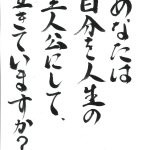 あなたは
自分を人生の
主人公にして、
生きていますか?